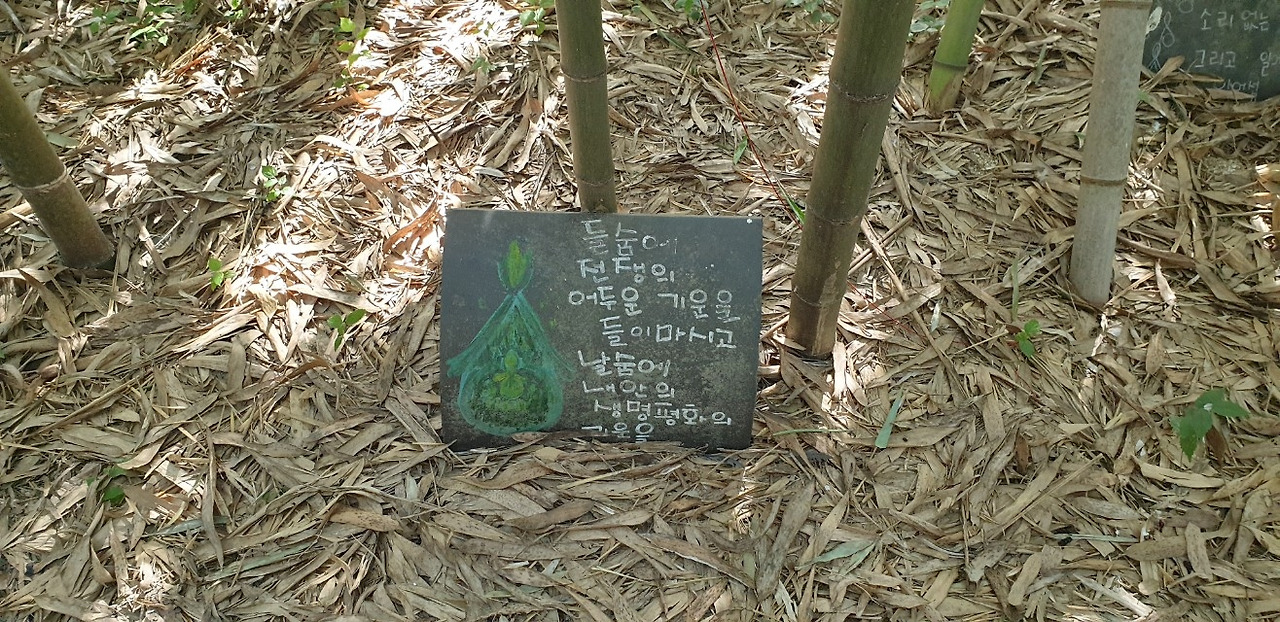 들숨에
전쟁의
어두운 기운을
들이마시고
날숨에
내안의
생명평화의
기운을
소리 없는
그리고